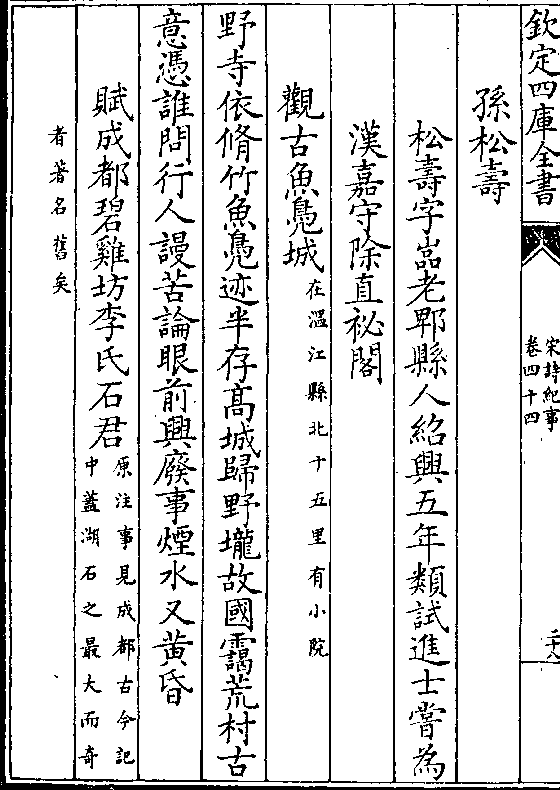 欽定四庫全書
宋詩紀事
卷四十四
三十八
孫松壽
松壽字嵓老郫縣人紹興五年類試進士嘗為
漢嘉守除直祕閣
觀古魚鳧城在溫江縣北十五里有小院
野寺依脩竹魚鳧迹半存髙城歸野壠故國靄荒村古
意憑誰問行人謾苦論眼前興廢事煙水又黄昏
賦成都碧雞坊李氏石君原注事見成都古今記
中蓋湖石之最大而奇
者著名舊矣